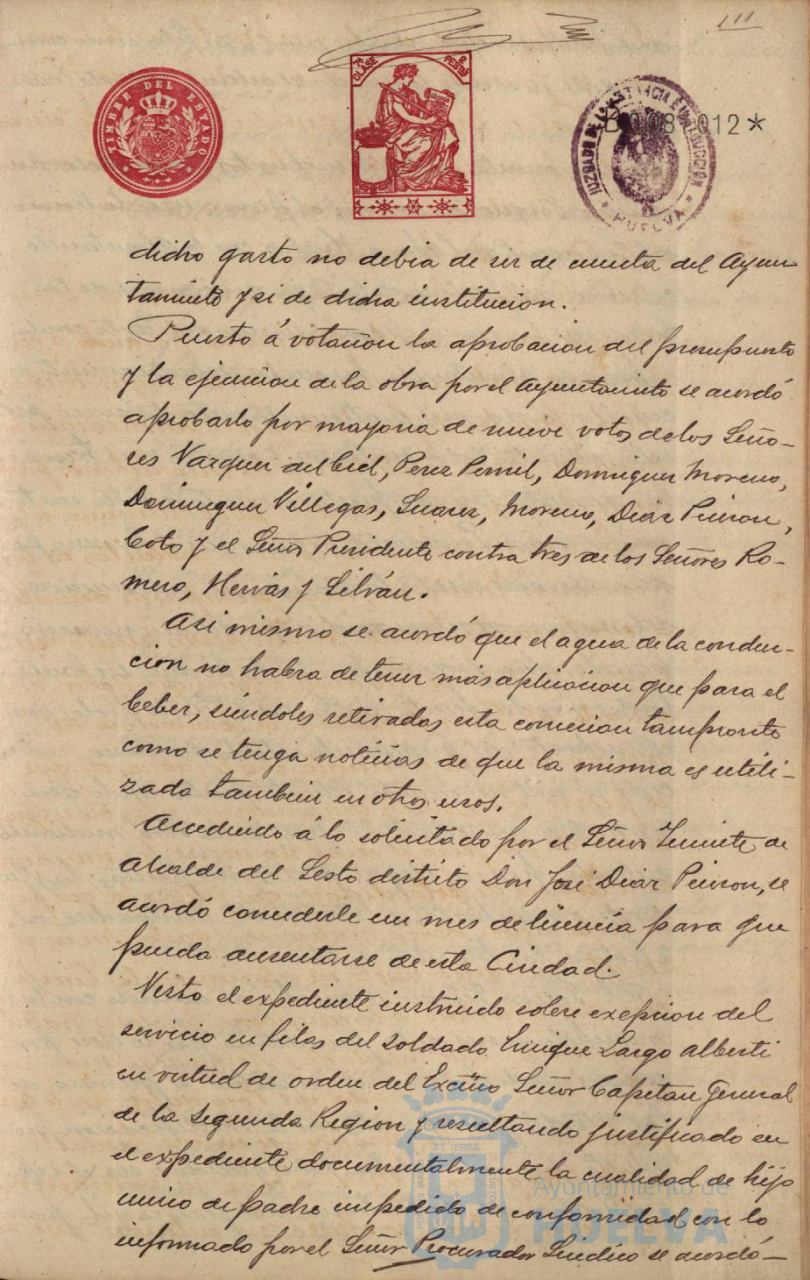 111
TIMBRE DEL ESTADO
7ª CLASE
PESETAS
JUZGADO DE INSTRUCCIÓN
HUELVA
012*
dicho gasto no debia de ser de cuenta del Ayun
tamiento y si de dicha institucion.
Puesto á votacion la aprobacion del presupuesto
y la ejecucion de la obra por el Ayuntamiento se acordó
aprobarlo por mayoria de nueve votos de los Seño-
res Vazquez del Cid, Perez Pernil, Dominguez Moreno,
Dominguez Villegas, Suarez, Moreno, Diaz Pinzon,
Coto y el Señor Presidente contra tres de los Señores Ro-
mero, Hervás y Silván.
Asi mismo se acordó que el agua de la conduc-
cion no habra de tener más aplicacion que para el
beber, siendoles retiradas esta concesion tan pronto
como se tenga noticias de que la misma es utili-
zada tambien en otros usos.
Accediendo á lo solicitado por el Señor Teniente de
Alcalde del Sesto distrito Don José Diaz Pinzon, se
acordó concederle un mes de licencia para que
pueda ausentarse de esta Ciudad.
Visto el expediente instruido sobre exepcion del
servicio en filas del soldado Enrique Largo Alberti
en virtud de orden del Excmo Señor Capitan General
de la Segunda Region y resultando justificado en
el expediente documentalmente la cualidad de hijo
unico de padre impedido de conformidad con lo
informado por el Señor Procurador Sindico se acordó—
Ayuntamiento de
HUELVA